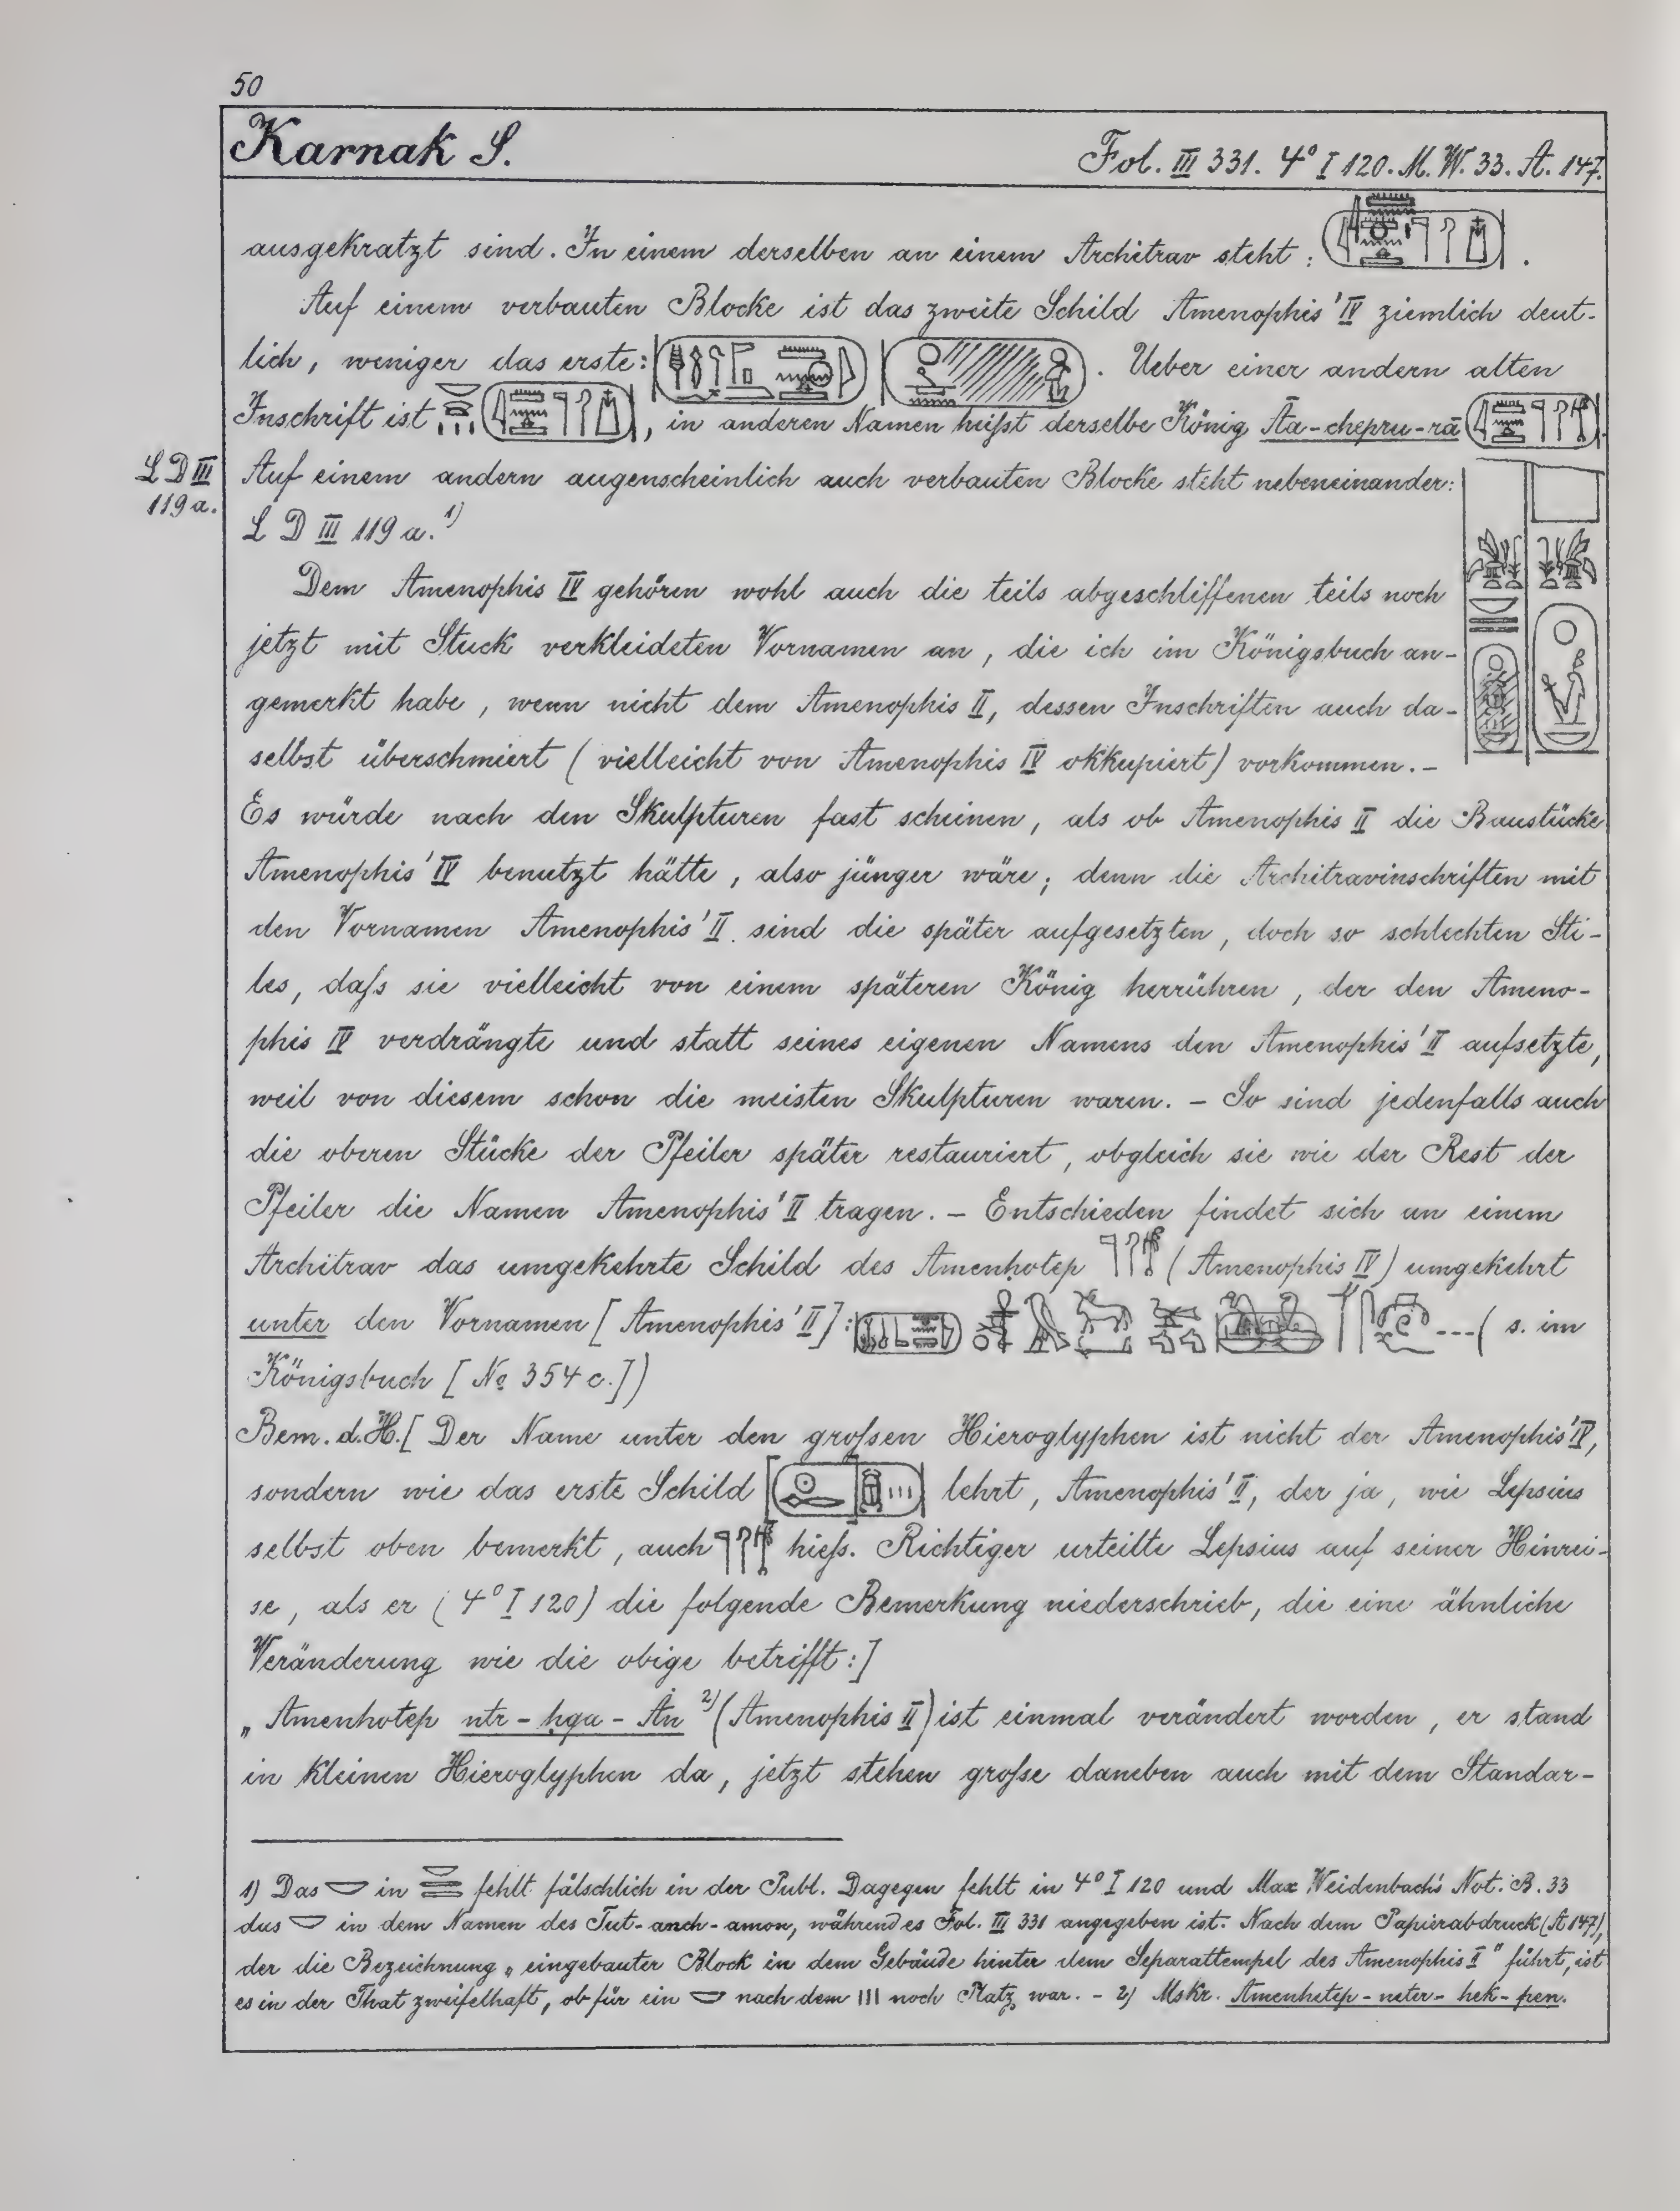 50
Karnak S. Fol. III 331. 4° I 120. M. W. 33. A. 147.
ausgekratzt sind. In einem derselben an einem Architrav steht: .
Auf einem verbauten Blocke ist das zweite Schild Amenophis' IV ziemlich deut-
lich, weniger das erste: . Ueber einer andern alten
Inschrift ist , in anderen Namen heißt derselbe König Āa-chepru-rā .
L D III
119 a.
Auf einem andern augenscheinlich auch verbauten Blocke steht nebeneinander:
L D III 119 a. 1)
Dem Amenophis IV gehören wohl auch die teils abgeschliffenen teils noch
jetzt mit Stuck verkleideten Vornamen an, die ich im Königsbuch an-
gemerkt habe, wenn nicht dem Amenophis II, dessen Inschriften auch da-
selbst überschmiert (vielleicht von Amenophis IV okkupiert) vorkommen. –
Es würde nach den Skulpturen fast scheinen, als ob Amenophis II die Baustücke
Amenophis' IV benutzt hätte, also jünger wäre; denn die Architravinschriften mit
den Vornamen Amenophis' II. sind die später aufgesetzten, doch so schlechten Sti-
les, daß sie vielleicht von einem späteren König herrühren, der den Ameno-
phis IV verdrängte und statt seines eigenen Namens den Amenophis' II aufsetzte,
weil von diesem schon die meisten Skulpturen waren. – So sind jedenfalls auch
die oberen Stücke der Pfeiler später restauriert, obgleich sie wie der Rest der
Pfeiler die Namen Amenophis' II tragen. – Entschieden findet sich an einem
Architrav das umgekehrte Schild des Amenḥotep (Amenophis IV) umgekehrt
unter den Vornamen [Amenophis' II]: ---- (s. im
Königsbuch [No 354 c.])
Bem. d. H. [Der Name unter den großen Hieroglyphen ist nicht der Amenophis' IV,
sondern wie das erste Schild lehrt, Amenophis' II, der ja, wie Lepsius
selbst oben bemerkt, auch hieß. Richtiger urteilte Lepsius auf seiner Hinrei-
se, als er (4° I 120) die folgende Bemerkung niederschrieb, die eine ähnliche
Veränderung wie die obige betrifft:]
„Amenhotep ntr - ḥqa - Ȧn 2) (Amenophis II) ist einmal verändert worden, er stand
in kleinen Hieroglyphen da, jetzt stehen große daneben auch mit dem Standar-
1) Das in fehlt fälschlich in der Publ. Dagegen fehlt in 4° I 120 und Max Weidenbachs Not. B. 33
das in dem Namen des Tut-anch-amon, während es Fol. III 331 angegeben ist. Nach dem Papierabdruck (A 147),
der die Bezeichnung „eingebauter Block in dem Gebäude hinter dem Separattempel des Amenophis I" führt, ist
es in der That zweifelhaft, ob für ein nach dem noch Platz war. – 2) Mskr. Amenhetep - neter - hek - pen.